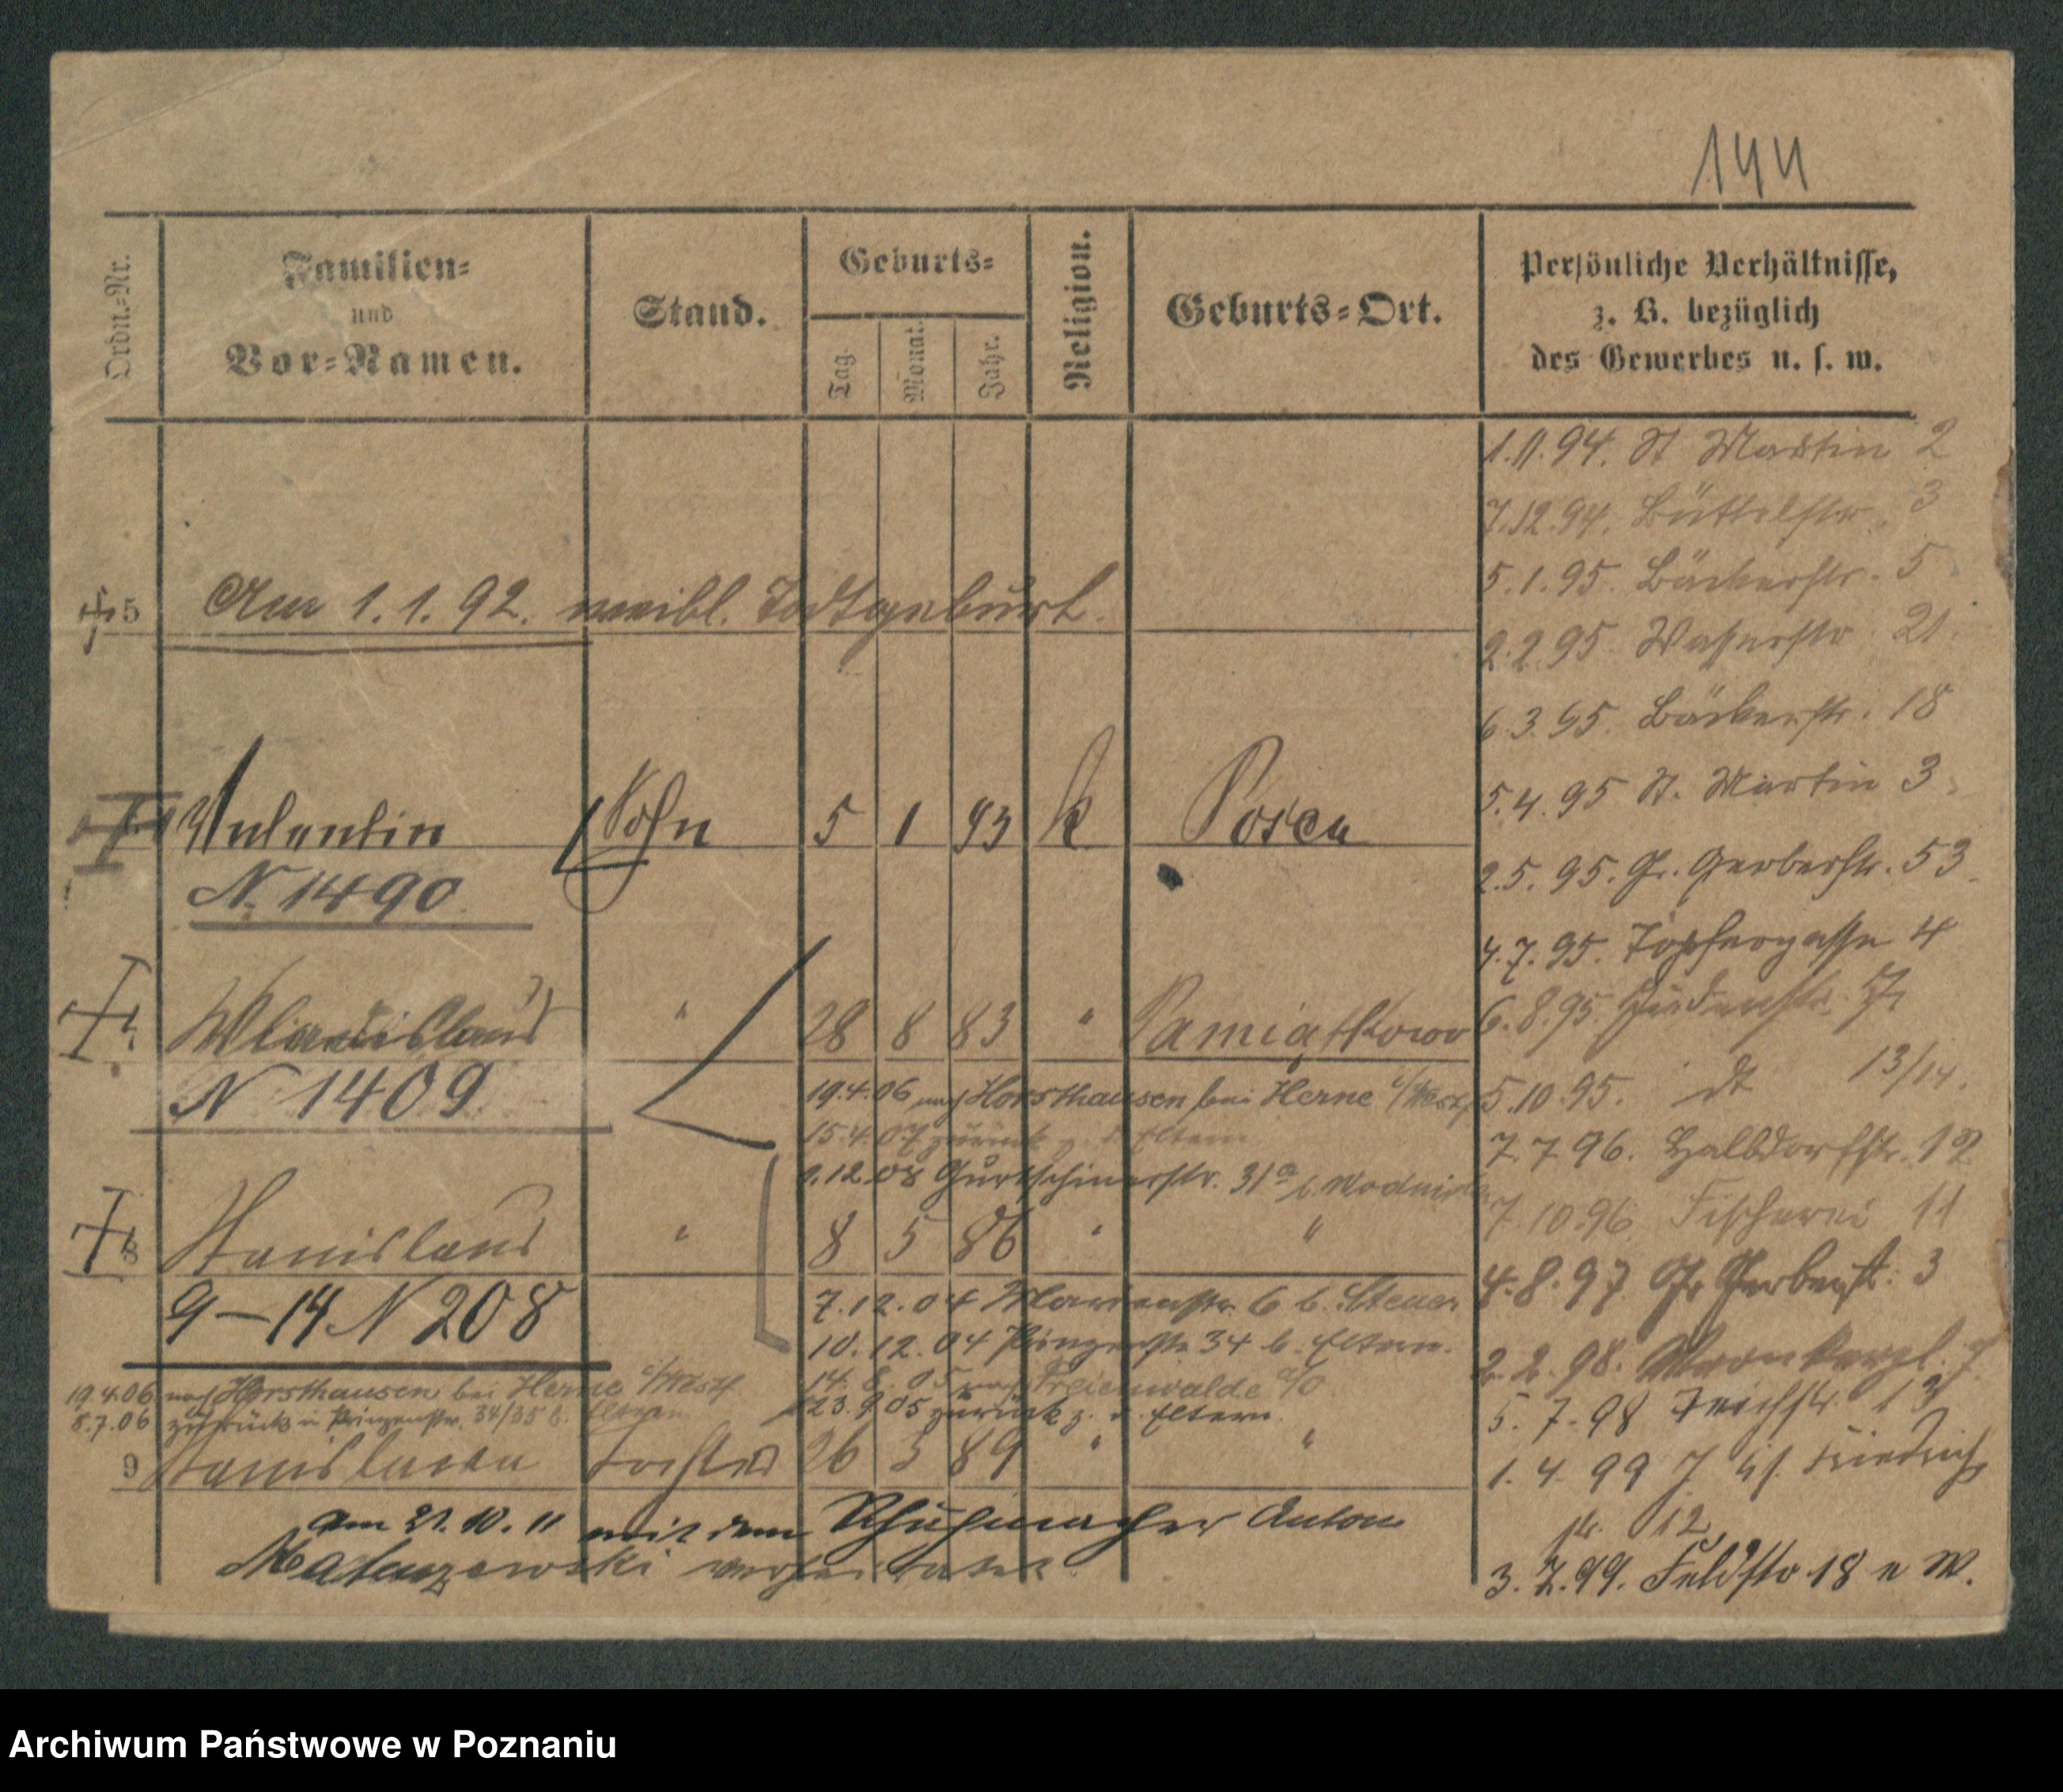 144
Ordn.-Nr.
Familien-
und
Vor-Namen.
Stand.
Geburts-
Tag.
Monat.
Jahr.
Religion.
Geburts-Ort.
Persönliche Verhältnisse,
z. B. bezüglich
des Gewerbes u. s. w.
5 Am 1.1.92. weibl. Todtgeburt.
Valentin Sohn 5 1 93 k Posen
N. 1490
Wladislaus " 28 8 83 " Pamiątkowo
N 1409
19.4.06 nach Horsthausen bei Herne i/Westf
15.4.07 zurück z. d. Eltern
1.12.08 Gurtschinerstr. 31a b.
8 Stanislaus " 8 5 86 " "
9-14 N 208
7.12.04 6 b.
10.12.04 Prinzenstr 34 b. Eltern.
14.8.05 nach Freienwalde a/O
23.9.05 zurück z. d. Eltern.
19.4.06 nach Horsthausen bei Herne i/Westf
8.7.06 zurück in Prinzenstr. 34/35 b. Eltern
9 Stanislawa Tochter 26 3 89 " "
am 21.10.11 mit dem Schuhmacher Anton
verheiratet
1.11.94. St Martin 2
7.12.94. Büttelstr. 3
5.1.95. Bäckerstr. 5
2.2.95. Wasserstr. 21
6.3.95. Bäckerstr. 18
5.4.95 St. Martin 3
2.5.95. Gr. Gerberstr. 53
4.7.95. Töpfergasse 4
6.8.95 Judenstr.
5.10.95. dt 13/14.
7.7 96. Halbdorfstr. 12
7.10.96 Fischerei 11
4.8.97. Gr Gerberst. 3
2.2.98. 7
5.7.98 Teichstr. 13
1.4 99 Friedrich
str. 12
3.7.99. Feldstr 18 e W.